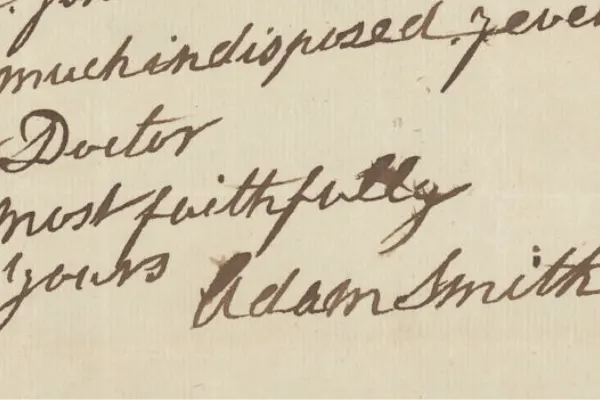 much indisposed. I ever
Doctor
most faithfully
yours Adam Smith